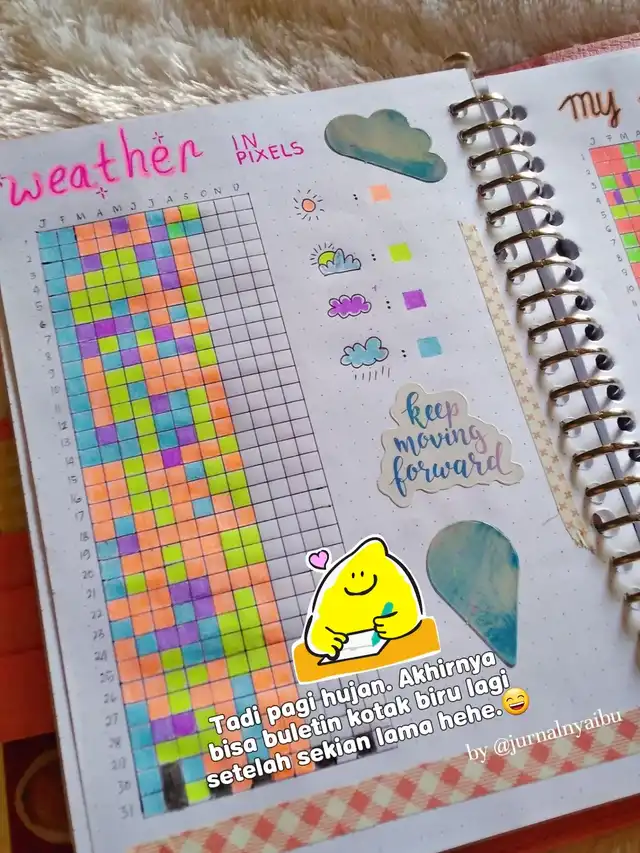 weather
IN
PIXELS
my
J F M A M J J A S O N D
J F M A
1
2
3
4
5
6
7
8
9
10
11
12
13
14
15
16
17
18
19
20
21
22
23
24
25
26
27
28
29
30
31
:
:
:
:
keep
moving
forward
1
2
3
4
5
6
7
8
9
10
Tadi pagi hujan. Akhirnya
bisa buletin kotak biru lagi
setelah sekian lama hehe.😄
by @jurnalnyaibu